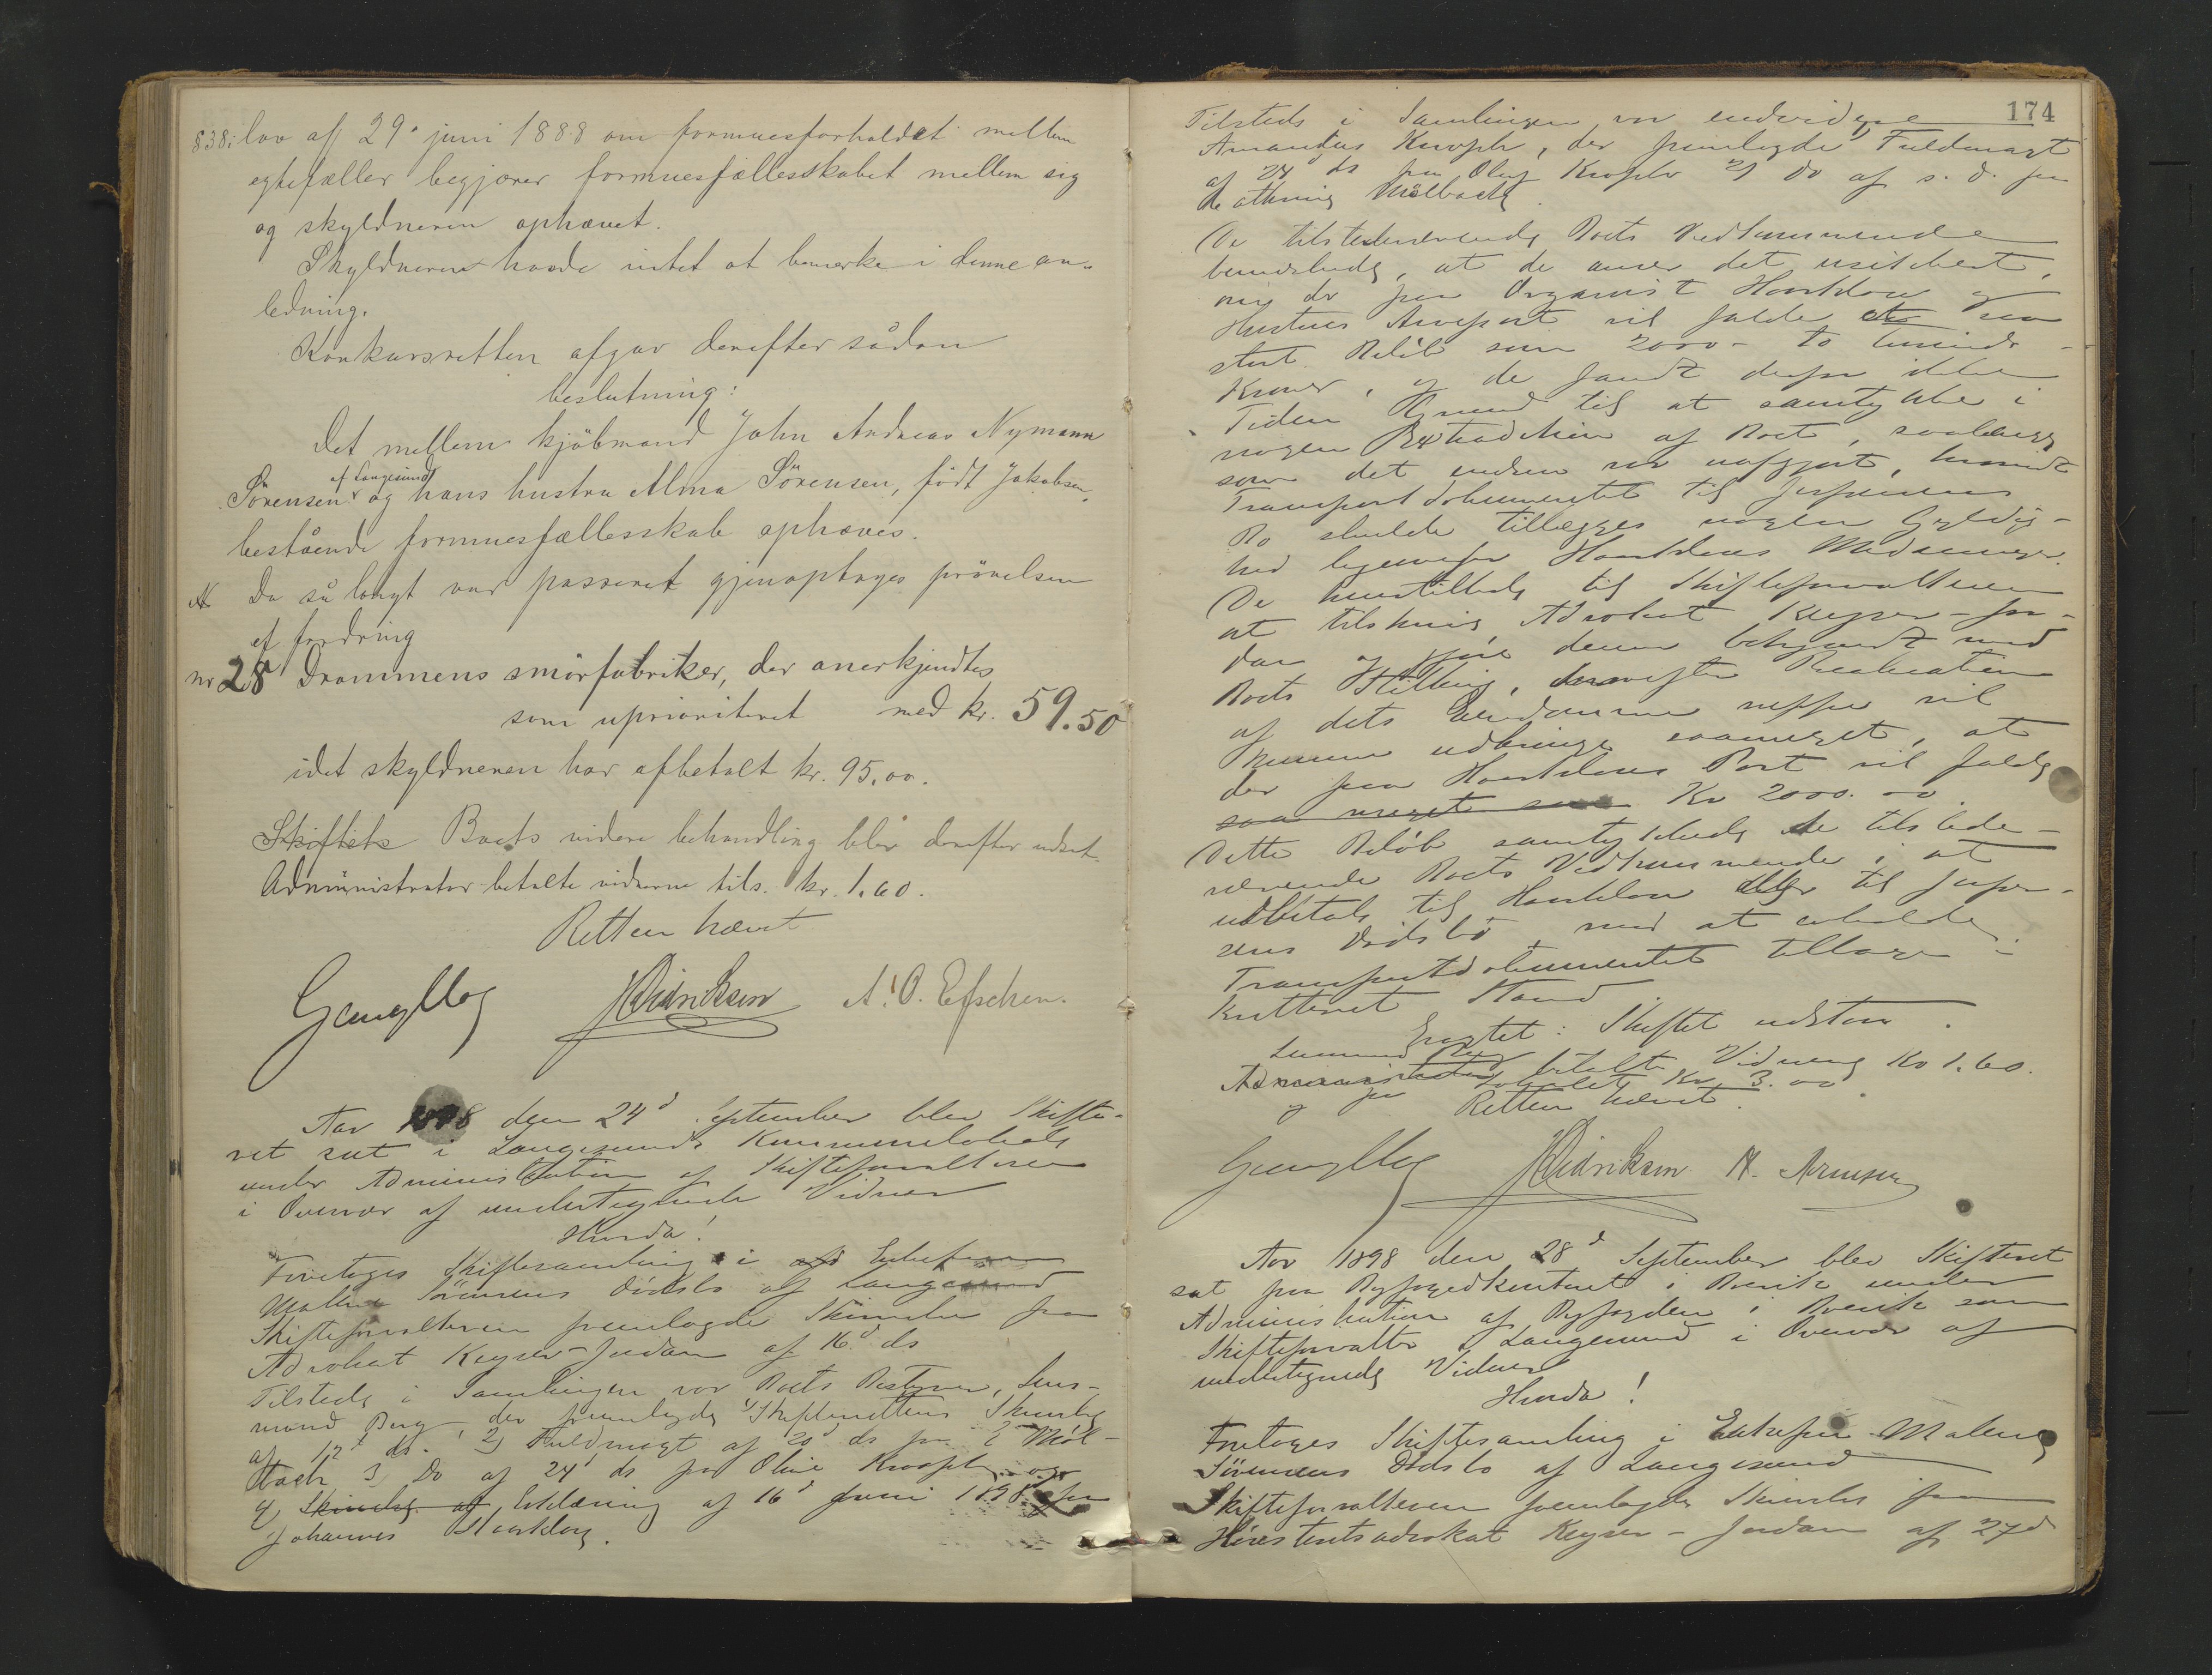 §38 i lov af 29 juni 1888 om formuesforholdet mellem
egtefæller begjærer formuesfællesskabet mellem sig
og skyldneren ophævet.
Skyldneren havde intet at bemerke i denne an-
ledning.
Konkursretten afgav derefter sådan
beslutning:
Det mellem kjöbmand John Andreas Nymann
af Langesund
Sörensen og hans hustru Alma Sörensen, födt Jakobsen,
bestående formuesfællesskab ophæves.
Da så langt var passeret gjenoptages prövelsen
af fordring
nr 28 Drammens smörfabriker, der anerkjendtes
som uprioriteret med kr. 59.50
idet skyldneren har afbetalt kr. 95.00.
Skiftets Boets videre behandling blev derefter udsat.
Administrator betalte vidnerne tils. kr. 1.60.
Retten hævet
HDidriksen A. O. Efschen.
Aar 1898 den 24d September blev Skifte-
ret sat i Langesunds Kommunelokale
under Administration af Skifteforvalteren
i Overvær af undertegnede Vidner
Hvorda!
Foretoges Skiftesamling i Enkefru
Malene Sörensens Dödsbo af Langesund
Skifteforvalteren fremlagde Skrivelse fra
Advokat Keyser-Jordan af 16d ds
Tilstede i Samlingen var Boets Bestyrer, Lens-
mand Berg, der fremlagde 1) Skifterettens Skrivelse
af 12t ds. 2) Fuldmagt af 20d ds fra E Möl-
bach 3) Do af 24d ds fra Oline Knoph og
4) Skrivelse af Erklæring af 16d Juni 1898 fra
Johannes Haarklou.
174
Tilsteds i Samlingen var endvidere
Amandus Knoph, der fremlagde Fuldmagt
af 24d ds fra Oluf Knoph 2) Do af s. d. fra
Mölbach.
De tilstedeværende Boets Vedkommende
bemærkede, at de anser det usikkert,
om der paa Organist Haarklou og
Hustrus Arvepart vil falde et saa
stort Belöb som 2000 - to tusinde -
Kroner, og de fandt derfor ikke
Tiden Grund til at samtykke i
nogen Extradition af Boet, saalænge
som det endnu var uafgjort, hvorvidt
Transportdokumentet til Jespersens
Bo skulde tillægges nogen Gyldig-
hed ligeoverfor Haarklous Medarvinger.
De henstillede til Skifteforvalteren
at tilskrive Advokat Keyser-Jor-
dan og gjöre denne bekjendt med
Boets Stilling, hvorefter Realisation
af dets Eiendomme neppe vil
kunne udbringe saameget, at
der paa Haarklous Part vil falde
saa meget som Kr 2000.00.
Dette Belöb samtykkede de tilstede-
værende Boets Vedkommende i at
udbetale til Haarklou eller til Jesper-
sens Dödsbo mod at erholde
Transportdokumentet tilbage i
kvitteret Stand.
Eragtet: Skiftet udstaar.
Lensmand Berg
Administrator betalte Vidnerne Kr 1.60.
og for Lokalet Kr. 3.00.
Retten hævet.
HDidriksen
Aar 1898 den 28d September blev Skifteret
sat paa Byfogedkontoret i Brevik under
Administration af Byfogden i Brevik som
Skifteforvalter i Langesund i Overvær af
undertegnede Vidner
Hvorda!
Foretoges Skiftesamling i Enkefru Malene
Sörensens Dödsbo af Langesund
Skifteforvalteren fremlagde Skrivelse fra
Höiesteretsadvokat Keyser-Jordan af 27d